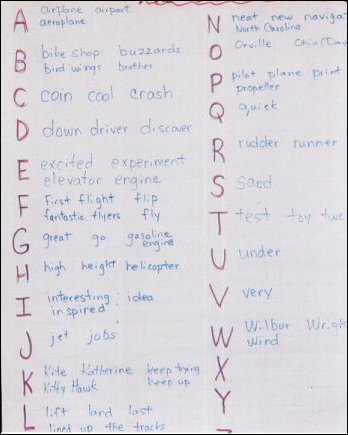 A airplane airport
aeroplane
B bike shop buzzards
bird wings brother
C coin cool crash
D down driver discover
E excited experiment
elevator engine
F First flight flip
fantastic flyers fly
G great go gasoline
engine
H high height helicopter
I interesting idea
inspired
J jet jobs
K Kite Katherine keep trying
Kitty Hawk keep up
L lift land last
lined up the tracks
N neat new navigat
North Carolina
O Orville
P pilot plane print
propeller
Q quiet
R rudder runner
S sand
T test toy
U under
V very
W Wilbur Wrigh
Wind
X
Y